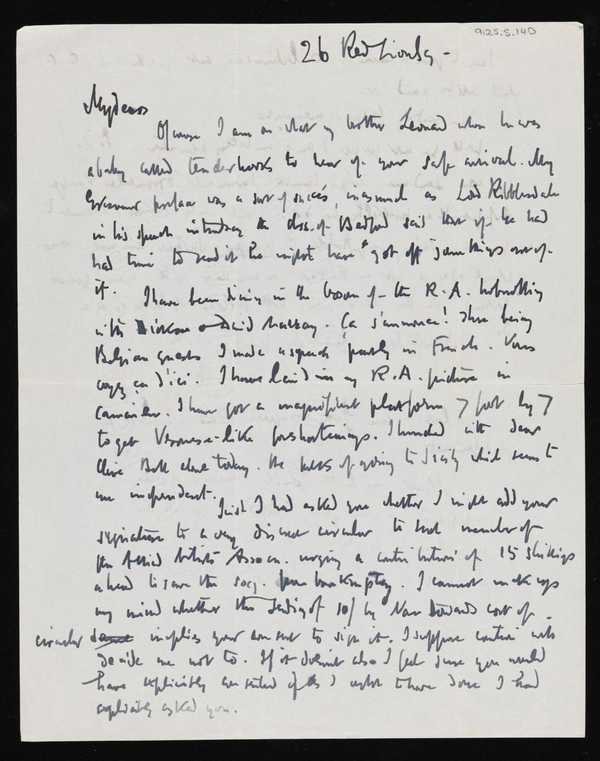 9125.5.140
26 Red Lion Sq -
My dears
Of course I am on what my brother Leonard when he was
a baby called tenderhooks to hear of your safe arrival. My
Grosvenor preface was a sort of succès, inasmuch as Lord Ribblesdale
in his speech introducing the of Bedford said that if he had
had time to read it he might have "got off" some things out of
it. I have been dining in the bosom of the R.A. hobnobbing
with and David Murray. Ça s'annonce! There being
Belgian guests I made a speech partly in French. Vous
voyez ça d'ici. I have laid in my R.A. picture in
camaieu. I have got a magnificent platform 7 foot by 7
to get Veronese-like foreshortenings. I lunched with dear
Clive Bell alone today. He talks of going to Sicily which seems to
me independent.
I wish I had asked you whether I might add your
signature to a very discreet circular to each member of
the Allied Artists Assocn. urging a contribution of 15 shillings
a head to save the socy. from bankruptcy. I cannot make up
my mind whether the sending of 10/ by Nan towards cost of
circular implies your consent to sign it. I suppose will
decide me not to. If it doesn't also I feel sure you would
have explicitly if as I ought to have done I had
explicitly asked you.